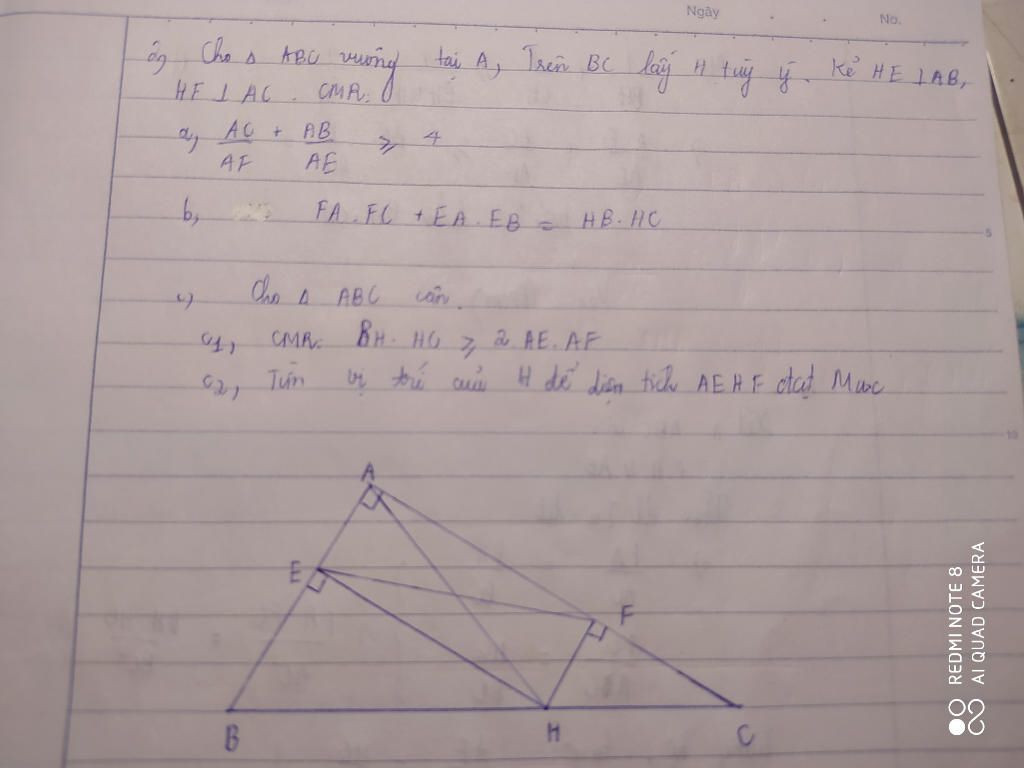 Ngày No.
Cho Δ ABC vuông tại A, Trên BC lấy H tuỳ ý. Kẻ HE ⊥ AB,
HF ⊥ AC. CMR:
a, AC/AF + AB/AE ⩾ 4
b, FA.FC + EA.EB = HB.HC
5
c) Cho Δ ABC cân.
c1, CMR: BH.HC ⩾ 2 AE.AF
c2, Tìm vị trí của H để diện tích AEHF đạt Max
10
A
E
F
B H C
REDMI NOTE 8
AI QUAD CAMERA